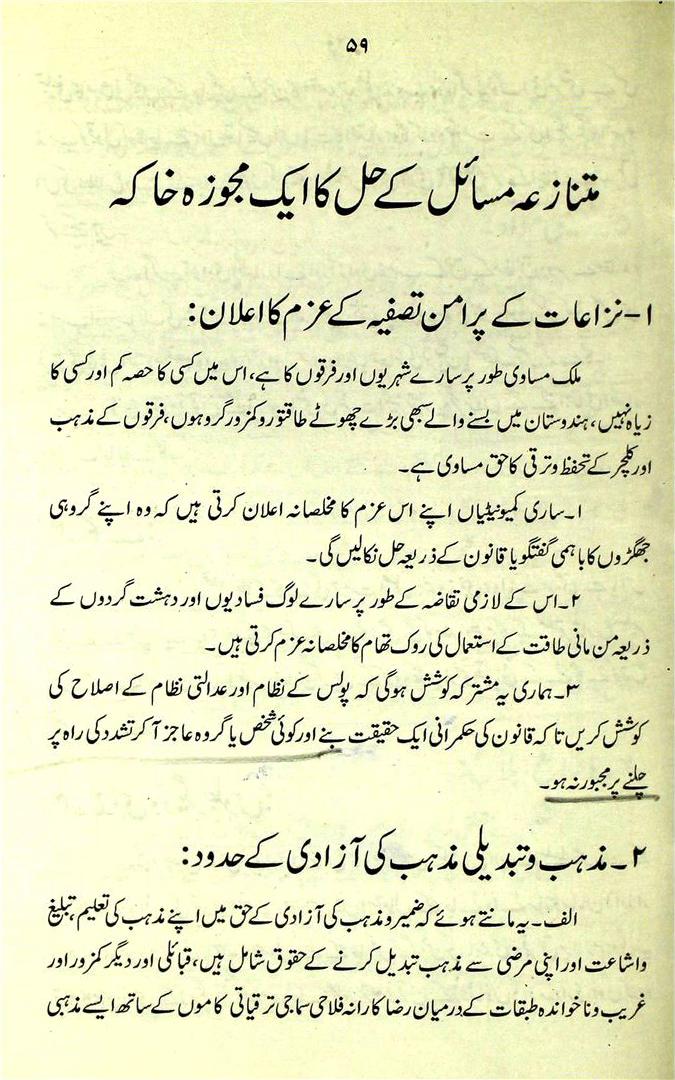 ۵۹
متنازعہ مسائل کے حل کا ایک مجوزہ خاکہ
۱- نزاعات کے پرامن تصفیہ کے عزم کا اعلان:
ملک مساوی طور پر سارے شہریوں اور فرقوں کا ہے، اس میں کسی کا حصہ کم اور کسی کا
زیادہ نہیں، ہندوستان میں بسنے والے سبھی بڑے چھوٹے طاقتور و کمزور گروہوں، فرقوں کے مذہب
اور کلچر کے تحفظ و ترقی کا حق مساوی ہے۔
۱۔ ساری کمیونیٹیاں اپنے اس عزم کا مخلصانہ اعلان کرتی ہیں کہ وہ اپنے گروہی
جھگڑوں کا باہمی گفتگو یا قانون کے ذریعہ حل نکالیں گی۔
۲۔ اس کے لازمی تقاضہ کے طور پر سارے لوگ فسادیوں اور دہشت گردوں کے
ذریعہ من مانی طاقت کے استعمال کی روک تھام کا مخلصانہ عزم کرتی ہیں۔
۳۔ ہماری یہ مشترکہ کوشش ہوگی کہ پولس کے نظام اور عدالتی نظام کے اصلاح کی
کوشش کریں تاکہ قانون کی حکمرانی ایک حقیقت بنے اور کوئی شخص یا گروہ عاجز آکر تشدد کی راہ پر
چلنے پر مجبور نہ ہو۔
۲۔ مذہب و تبدیلی مذہب کی آزادی کے حدود:
الف۔ یہ مانتے ہوئے کہ ضمیر و مذہب کی آزادی کے حق میں اپنے مذہب کی تعلیم، تبلیغ
و اشاعت اور اپنی مرضی سے مذہب تبدیل کرنے کے حقوق شامل ہیں، قبائلی اور دیگر کمزور اور
غریب و ناخواندہ طبقات کے درمیان رضاکارانہ فلاحی سماجی ترقیاتی کاموں کے ساتھ ایسے مذہبی